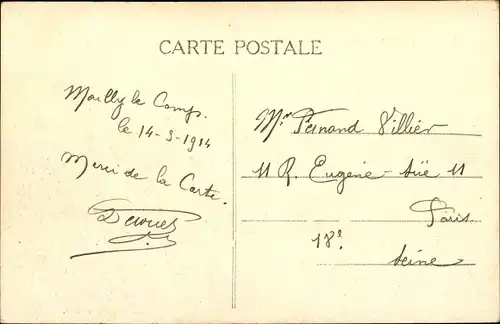 CARTE POSTALE
Mailly le Camp.
le 14-3-1914
Merci de la Carte.
Mr Fernand Villier
11 R. Eugène-Süe 11
Paris
18e
Seine